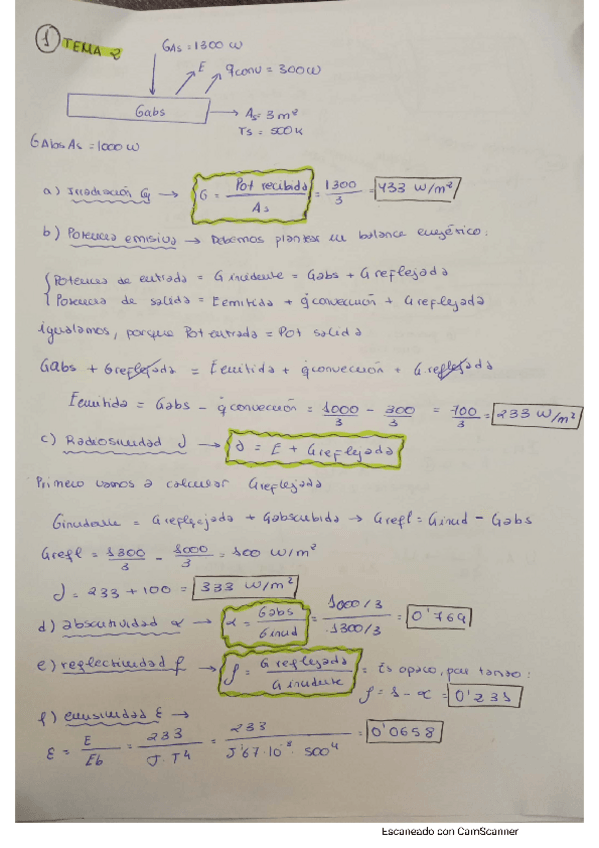 ① TEMA 2
GAs = 1300 W
E q̇conv = 300 W
Gabs
As = 3 m²
Ts = 500 K
GAbs As = 1000 W
a) Irradiación G → G = Pot recibida / As = 1300 / 3 = 433 W/m²
b) Potencia emisiva → Debemos plantear un balance energético:
Potencia de entrada = G incidente = Gabs + G reflejada
Potencia de salida = E emitida + q̇ convección + G reflejada
igualamos, porque Pot entrada = Pot salida
Gabs + G reflejada = E emitida + q̇ convección + G reflejada
E emitida = Gabs - q̇ convección = 1000 / 3 - 300 / 3 = 700 / 3 = 233 W/m²
c) Radiosidad J → J = E + G reflejada
Primero vamos a calcular G reflejada
G incidente = G reflejada + G absorbida → G refl = G incid - Gabs
G refl = 1300 / 3 - 1000 / 3 = 100 W/m²
J = 233 + 100 = 333 W/m²
d) absortividad α → α = Gabs / G incid = 1000/3 / 1300/3 = 0'769
e) reflectividad ρ → ρ = G reflejada / G incidente = Es opaco, por tanto:
ρ = 1 - α = 0'231
f) emisividad ε →
ε = E / Eb = 233 / σ · T⁴ = 233 / 5'67·10⁻⁸ · 500⁴ = 0'0658
Escaneado con CamScanner